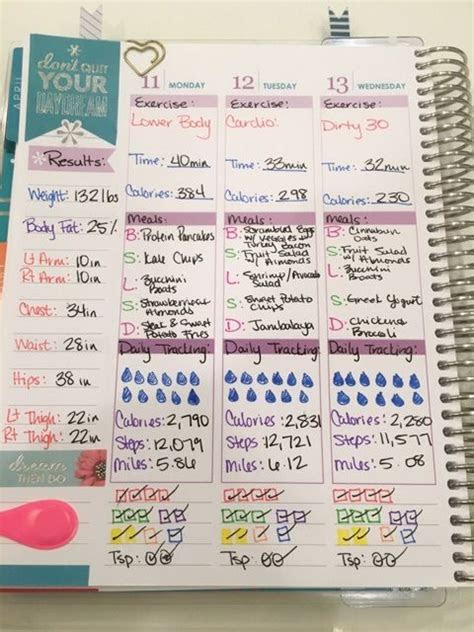 APRIL
don't Quit
YOUR
DAYDREAM
Results:
Weight: 132 lbs
Body Fat: 25%
Lt Arm: 10in
Rt Arm: 10in
Chest: 34in
Waist: 28in
Hips: 38 in
Lt Thigh: 22in
Rt Thigh: 22in
dream
THEN DO
11 MONDAY
Exercise:
Lower Body
Time: 40min
Calories: 384
Meals:
B: Protein Pancakes
S: Kale Chips
L: Zucchini
Boats
S: Strawberries
Almonds
D: Steak & Sweet
Potato Fries
Daily Tracking:
Calories: 2,790
Steps: 12,079
Miles: 5.86
Tsp:
12 TUESDAY
Exercise:
Cardio:
Time: 33min
Calories: 298
Meals:
B: Scrambled Eggs
w/ Veggies w/
Turkey Bacon
S: Fruit Salad
w/ Almonds
L: Shrimp/Avocado
Salad
S: Sweet Potato
Chips
D: Jambalaya
Daily Tracking:
Calories: 2,831
Steps: 12,721
Miles: 6.12
Tsp:
13 WEDNESDAY
Exercise:
Dirty 30
Time: 32min
Calories: 230
Meals:
B: Cinnabun
Oats
S: Fruit Salad
w/ Almonds
L: Zucchini
Boats
S: Greek Yogurt
D: Chicken &
Broccoli
Daily Tracking:
Calories: 2,280
Steps: 11,577
Miles: 5.08
Tsp: